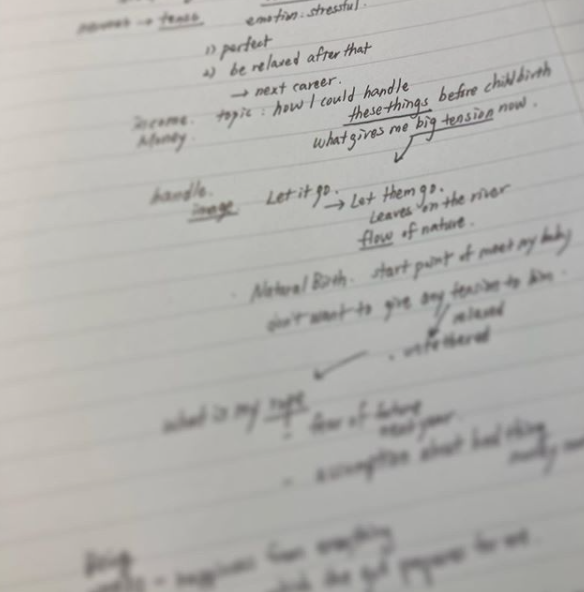 → tense emotion. stressful.
1) perfect
2) be relaxed after that
→ next career.
income. topic : how I could handle
these things before childbirth
Money. what gives me big tension now.
handle. Let it go. → Let them go.
image leaves on the river
flow of nature.
Natural Birth. start point of meet my baby
don't want to give any tension to him.
relaxed
. untethered
what is my rope?
- fear of future
next year.
- assumption about bad thing
Being
- happiness from everything